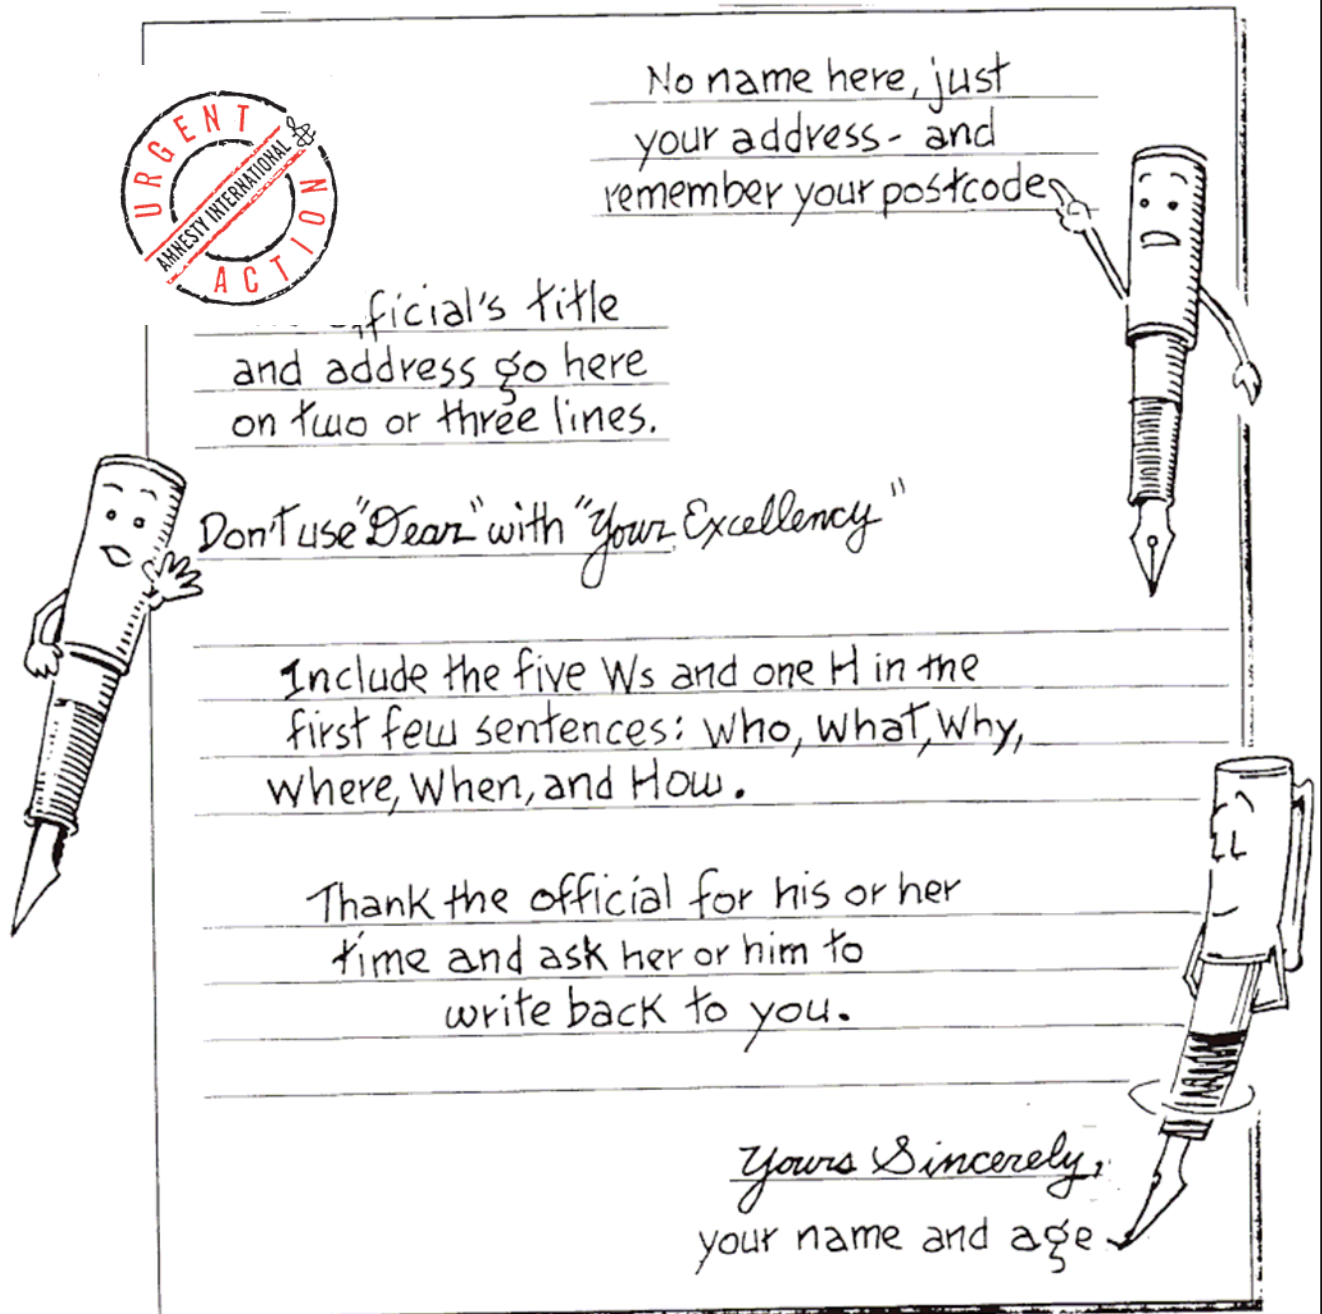 URGENT ACTION NOW
AMNESTY INTERNATIONAL
No name here, just
your address - and
remember your postcode
title
and address go here
on two or three lines.
Don't use "Dear" with "Your Excellency"
Include the five Ws and one H in the
first few sentences: Who, What, Why,
Where, When, and How.
Thank the official for his or her
time and ask her or him to
write back to you.
Yours Sincerely,
your name and age